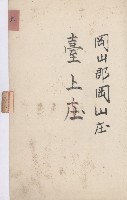 岡山郡岡山庄
臺上庄